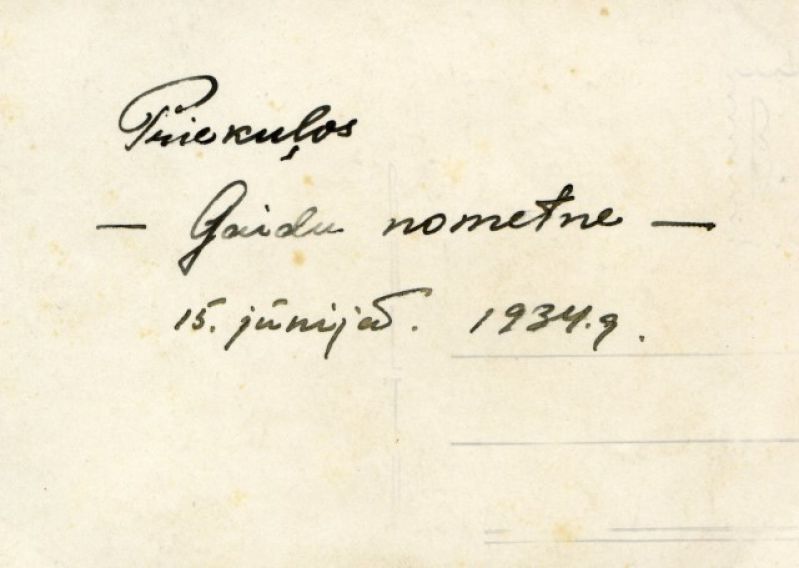 Priekuļos
— Gaidu nometne —
15. jūnijā. 1934.g.